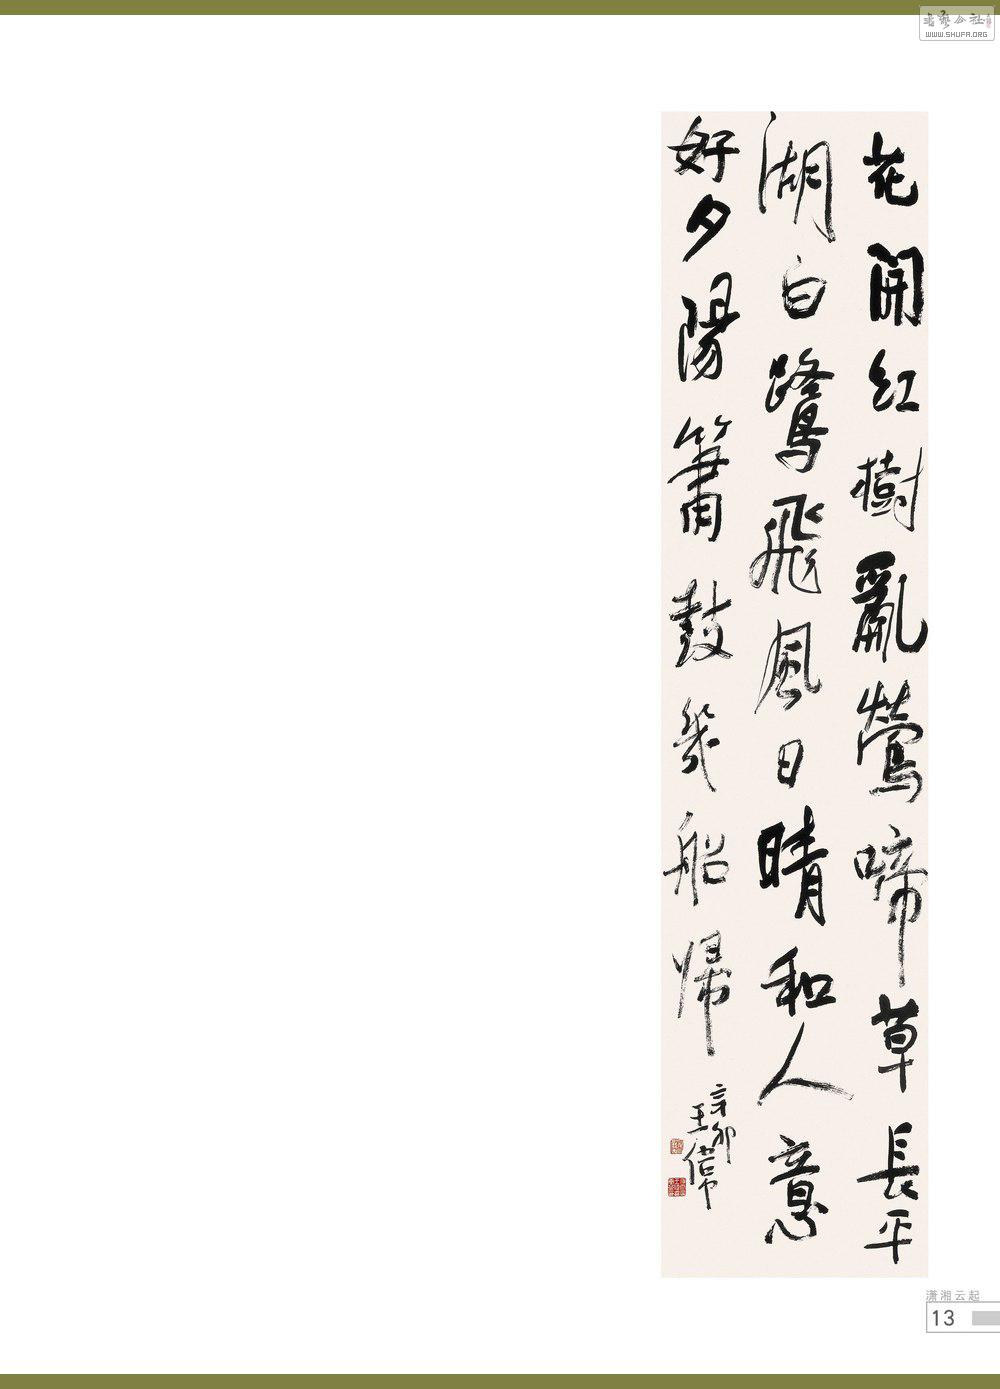 書藝公社
WWW.SHUFA.ORG
花開紅樹亂鶯啼草長平
湖白鷺飛風日晴和人意
好夕陽簫鼓幾船帰
辛卯
王偉
潇湘云起
13